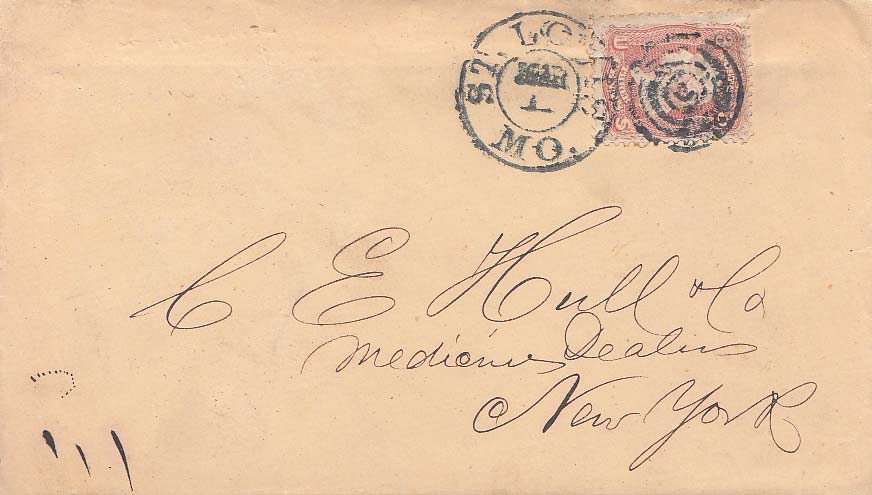 ST. LOUIS
MAR
1
MO.
C E Hull & Co
Medicine Dealers
New York